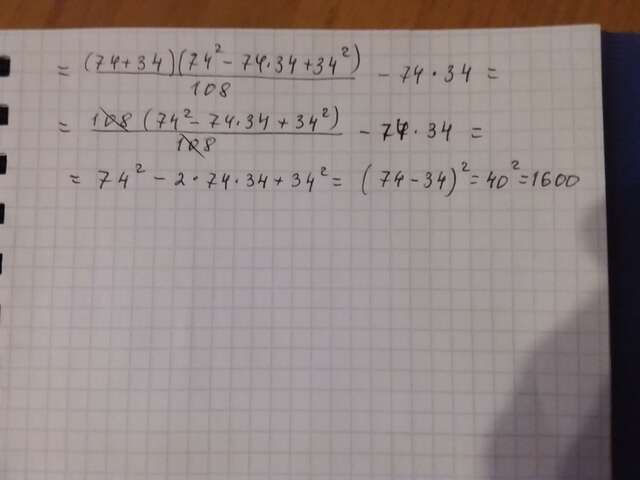 = (74+34)(74² - 74·34 + 34²) / 108 - 74·34 =
= 108 (74² - 74·34 + 34²) / 108 - 74·34 =
= 74² - 2·74·34 + 34² = (74-34)² = 40² = 1600